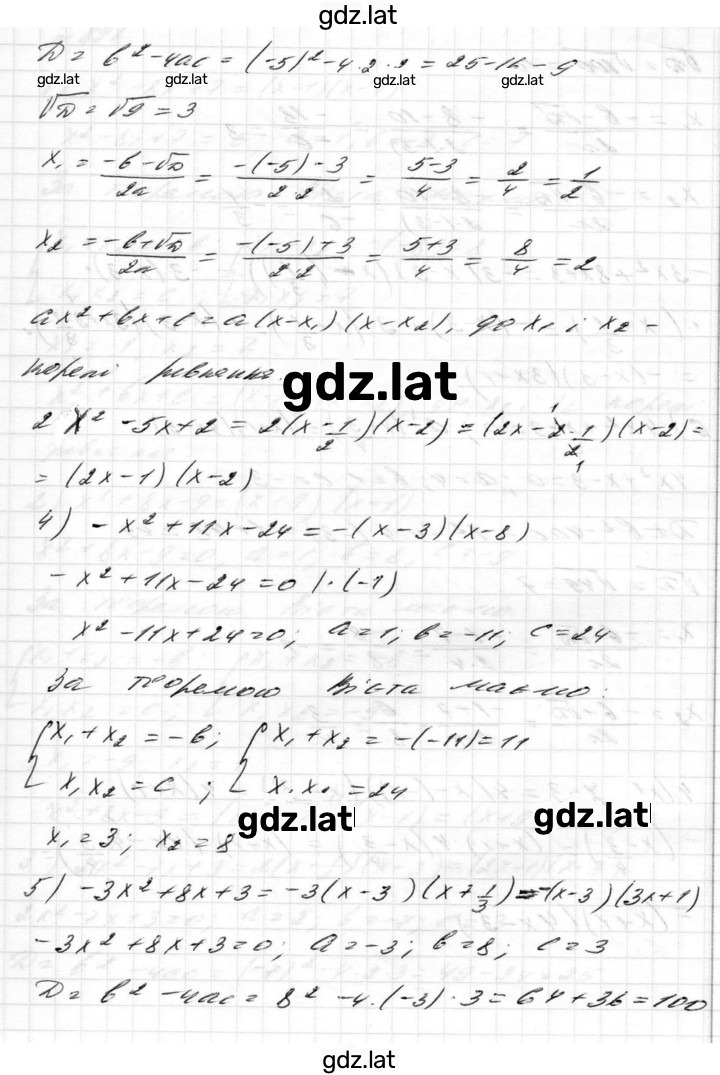 gdz.lat
D = b² - 4ac = (-5)² - 4·2·2 = 25 - 16 - 9
gdz.lat gdz.lat gdz.lat gdz.lat
√D = √9 = 3
x₁ = (-b - √D)/2a = (-(-5) - 3)/(2·2) = (5-3)/4 = 2/4 = 1/2
x₂ = (-b + √D)/2a = (-(-5) + 3)/(2·2) = (5+3)/4 = 8/4 = 2
ax² + bx + c = a(x - x₁)(x - x₂), де x₁ і x₂ -
корені рівняння.
gdz.lat
2x² - 5x + 2 = 2(x - 1/2)(x - 2) = (2x - 2·1/2)(x - 2) =
= (2x - 1)(x - 2)
4) -x² + 11x - 24 = -(x - 3)(x - 8)
-x² + 11x - 24 = 0 |·(-1)
x² - 11x + 24 = 0; a = 1; b = -11; c = 24
За теоремою Вієта маємо:
{x₁ + x₂ = -b; {x₁ + x₂ = -(-11) = 11
x₁x₂ = c; x₁x₂ = 24
gdz.lat gdz.lat
x₁ = 3; x₂ = 8
5) -3x² + 8x + 3 = -3(x - 3)(x + 1/3) = -(x - 3)(3x + 1)
-3x² + 8x + 3 = 0; a = -3; b = 8; c = 3
D = b² - 4ac = 8² - 4·(-3)·3 = 64 + 36 = 100
gdz.lat